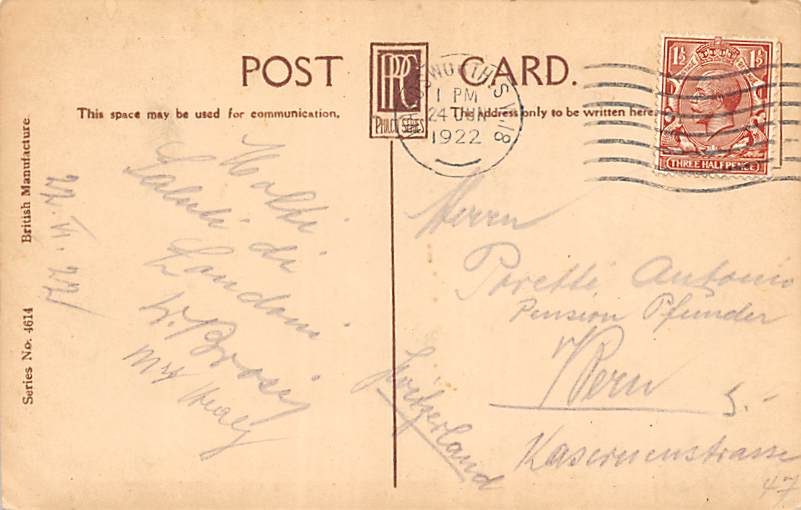 POST CARD.
This space may be used for communication.
The address only to be written here.
PPC
PHILCO SERIES
WANDSWORTH S.W.18
1 PM
24 JUN
1922
1½ 1½
THREE HALFPENCE
Series No. 4614 British Manufacture.
Molti
Saluti di
Londra
Herrn
Poretti Antonio
Pension Pfunder
Bern
Kasernenstrasse
47